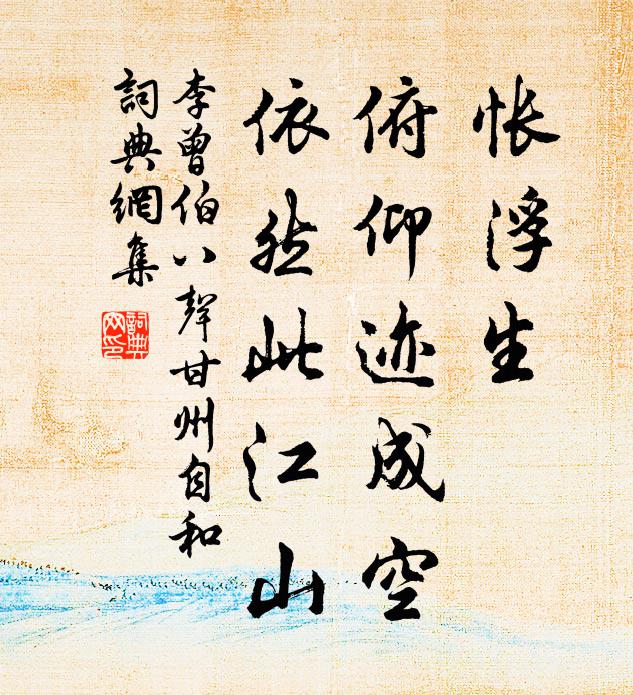 怅浮生
俯仰迹成空
依然此江山
李曾伯八聲甘州自和
詞典網集
詞典
网印